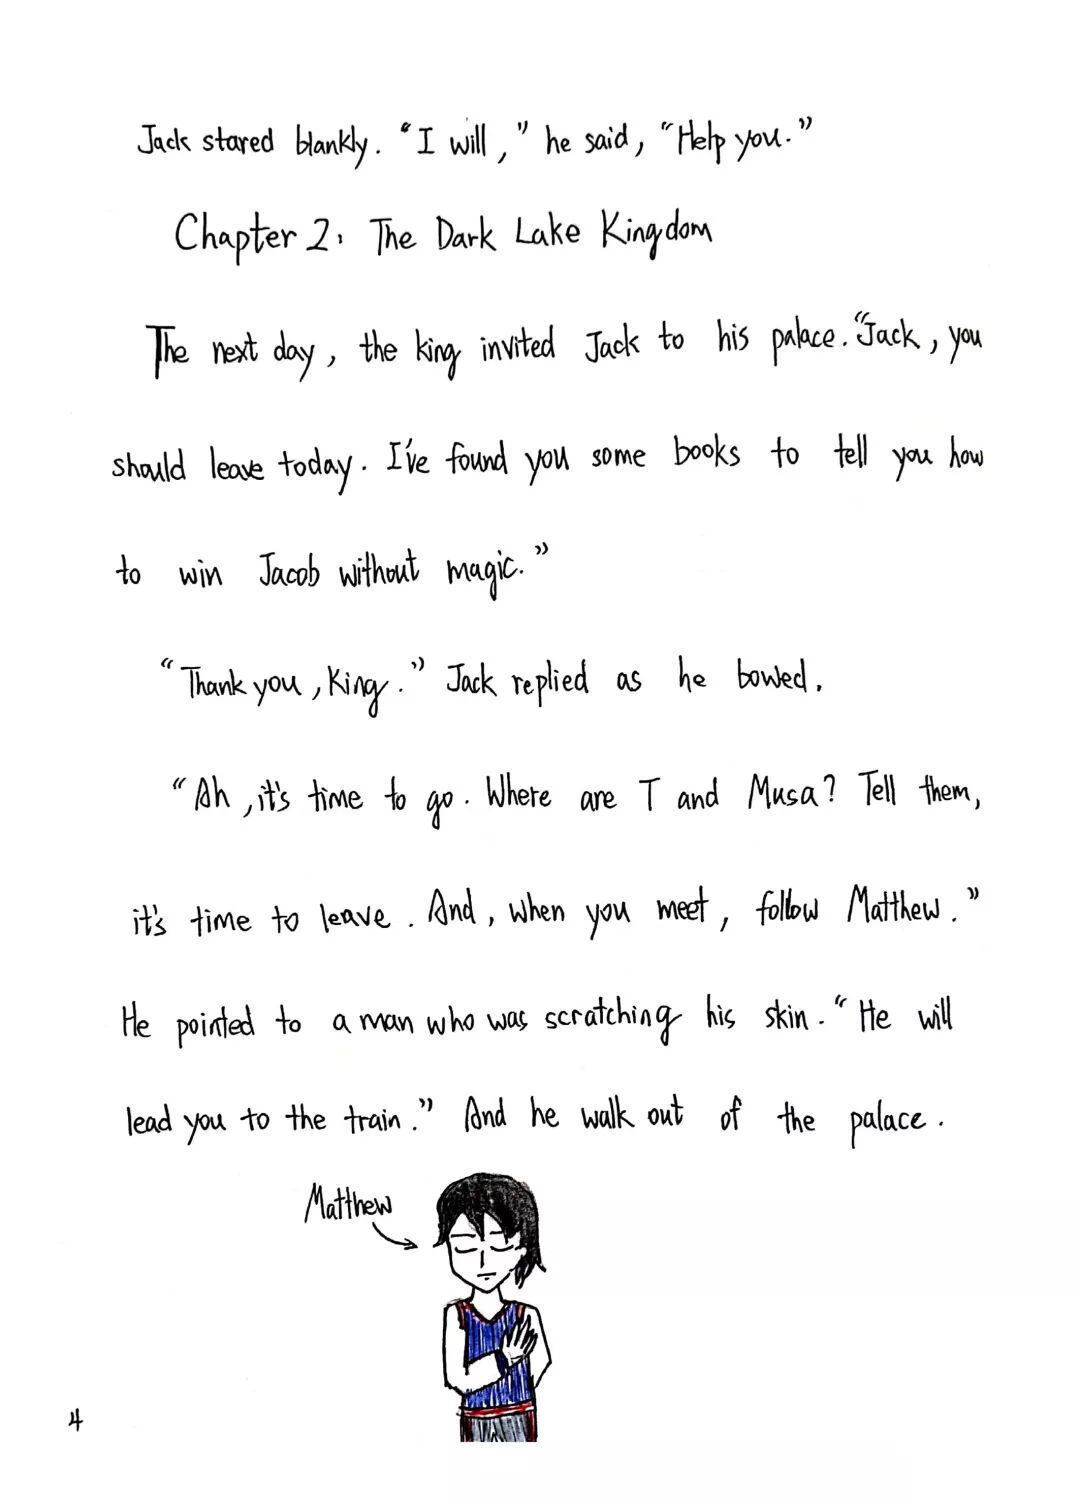 Jack stared blankly. “I will,” he said, “Help you.”
Chapter 2. The Dark Lake Kingdom
The next day, the king invited Jack to his palace. “Jack, you
should leave today. I've found you some books to tell you how
to win Jacob without magic.”
“Thank you, King.” Jack replied as he bowed.
“Ah, it's time to go. Where are T and Musa? Tell them,
it's time to leave. And, when you meet, follow Matthew.”
He pointed to a man who was scratching his skin. “He will
lead you to the train.” And he walk out of the palace.
Matthew
4